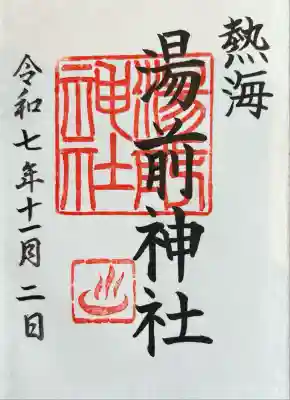 熱海
湯前神社
湯前神社
令和七年十一月二日